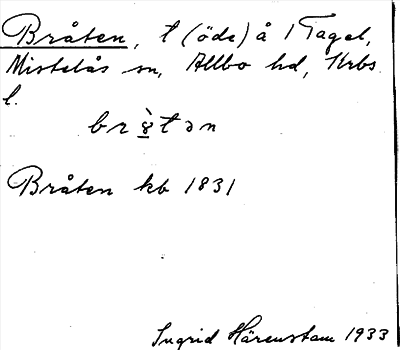 Bråten, t (öde) å 1 Tagel,
Mistelås sn, Allbo hd, Krbs
l.
Bråten kb 1831
Ingrid Härenstam 1933